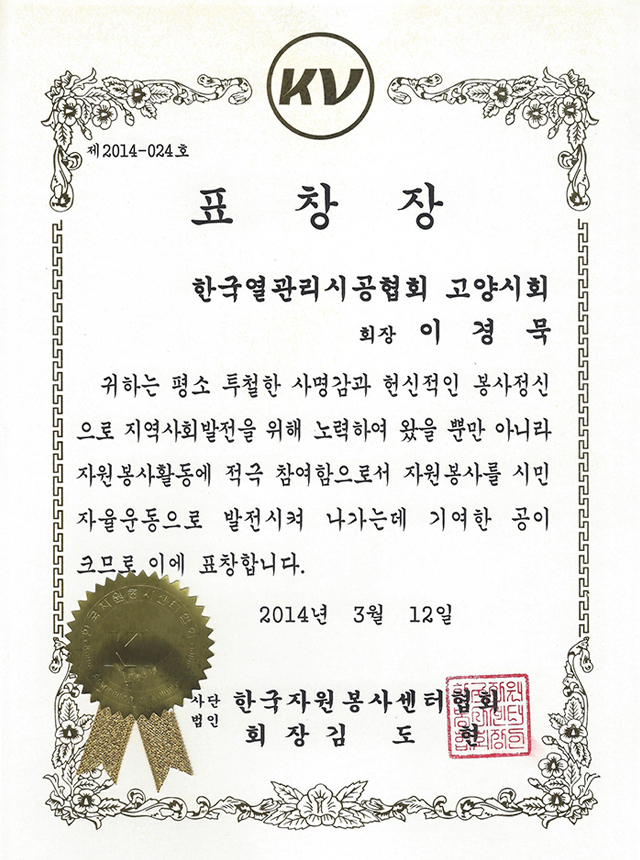 KV
제2014-024호
표 창 장
한국열관리시공협회 고양시회
회장 이 경 묵
귀하는 평소 투철한 사명감과 헌신적인 봉사정신
으로 지역사회발전을 위해 노력하여 왔을 뿐만 아니라
자원봉사활동에 적극 참여함으로서 자원봉사를 시민
자율운동으로 발전시켜 나가는데 기여한 공이
크므로 이에 표창합니다.
2014년 3월 12일
사단
법인 한국자원봉사센터협회
회 장 김 도 현